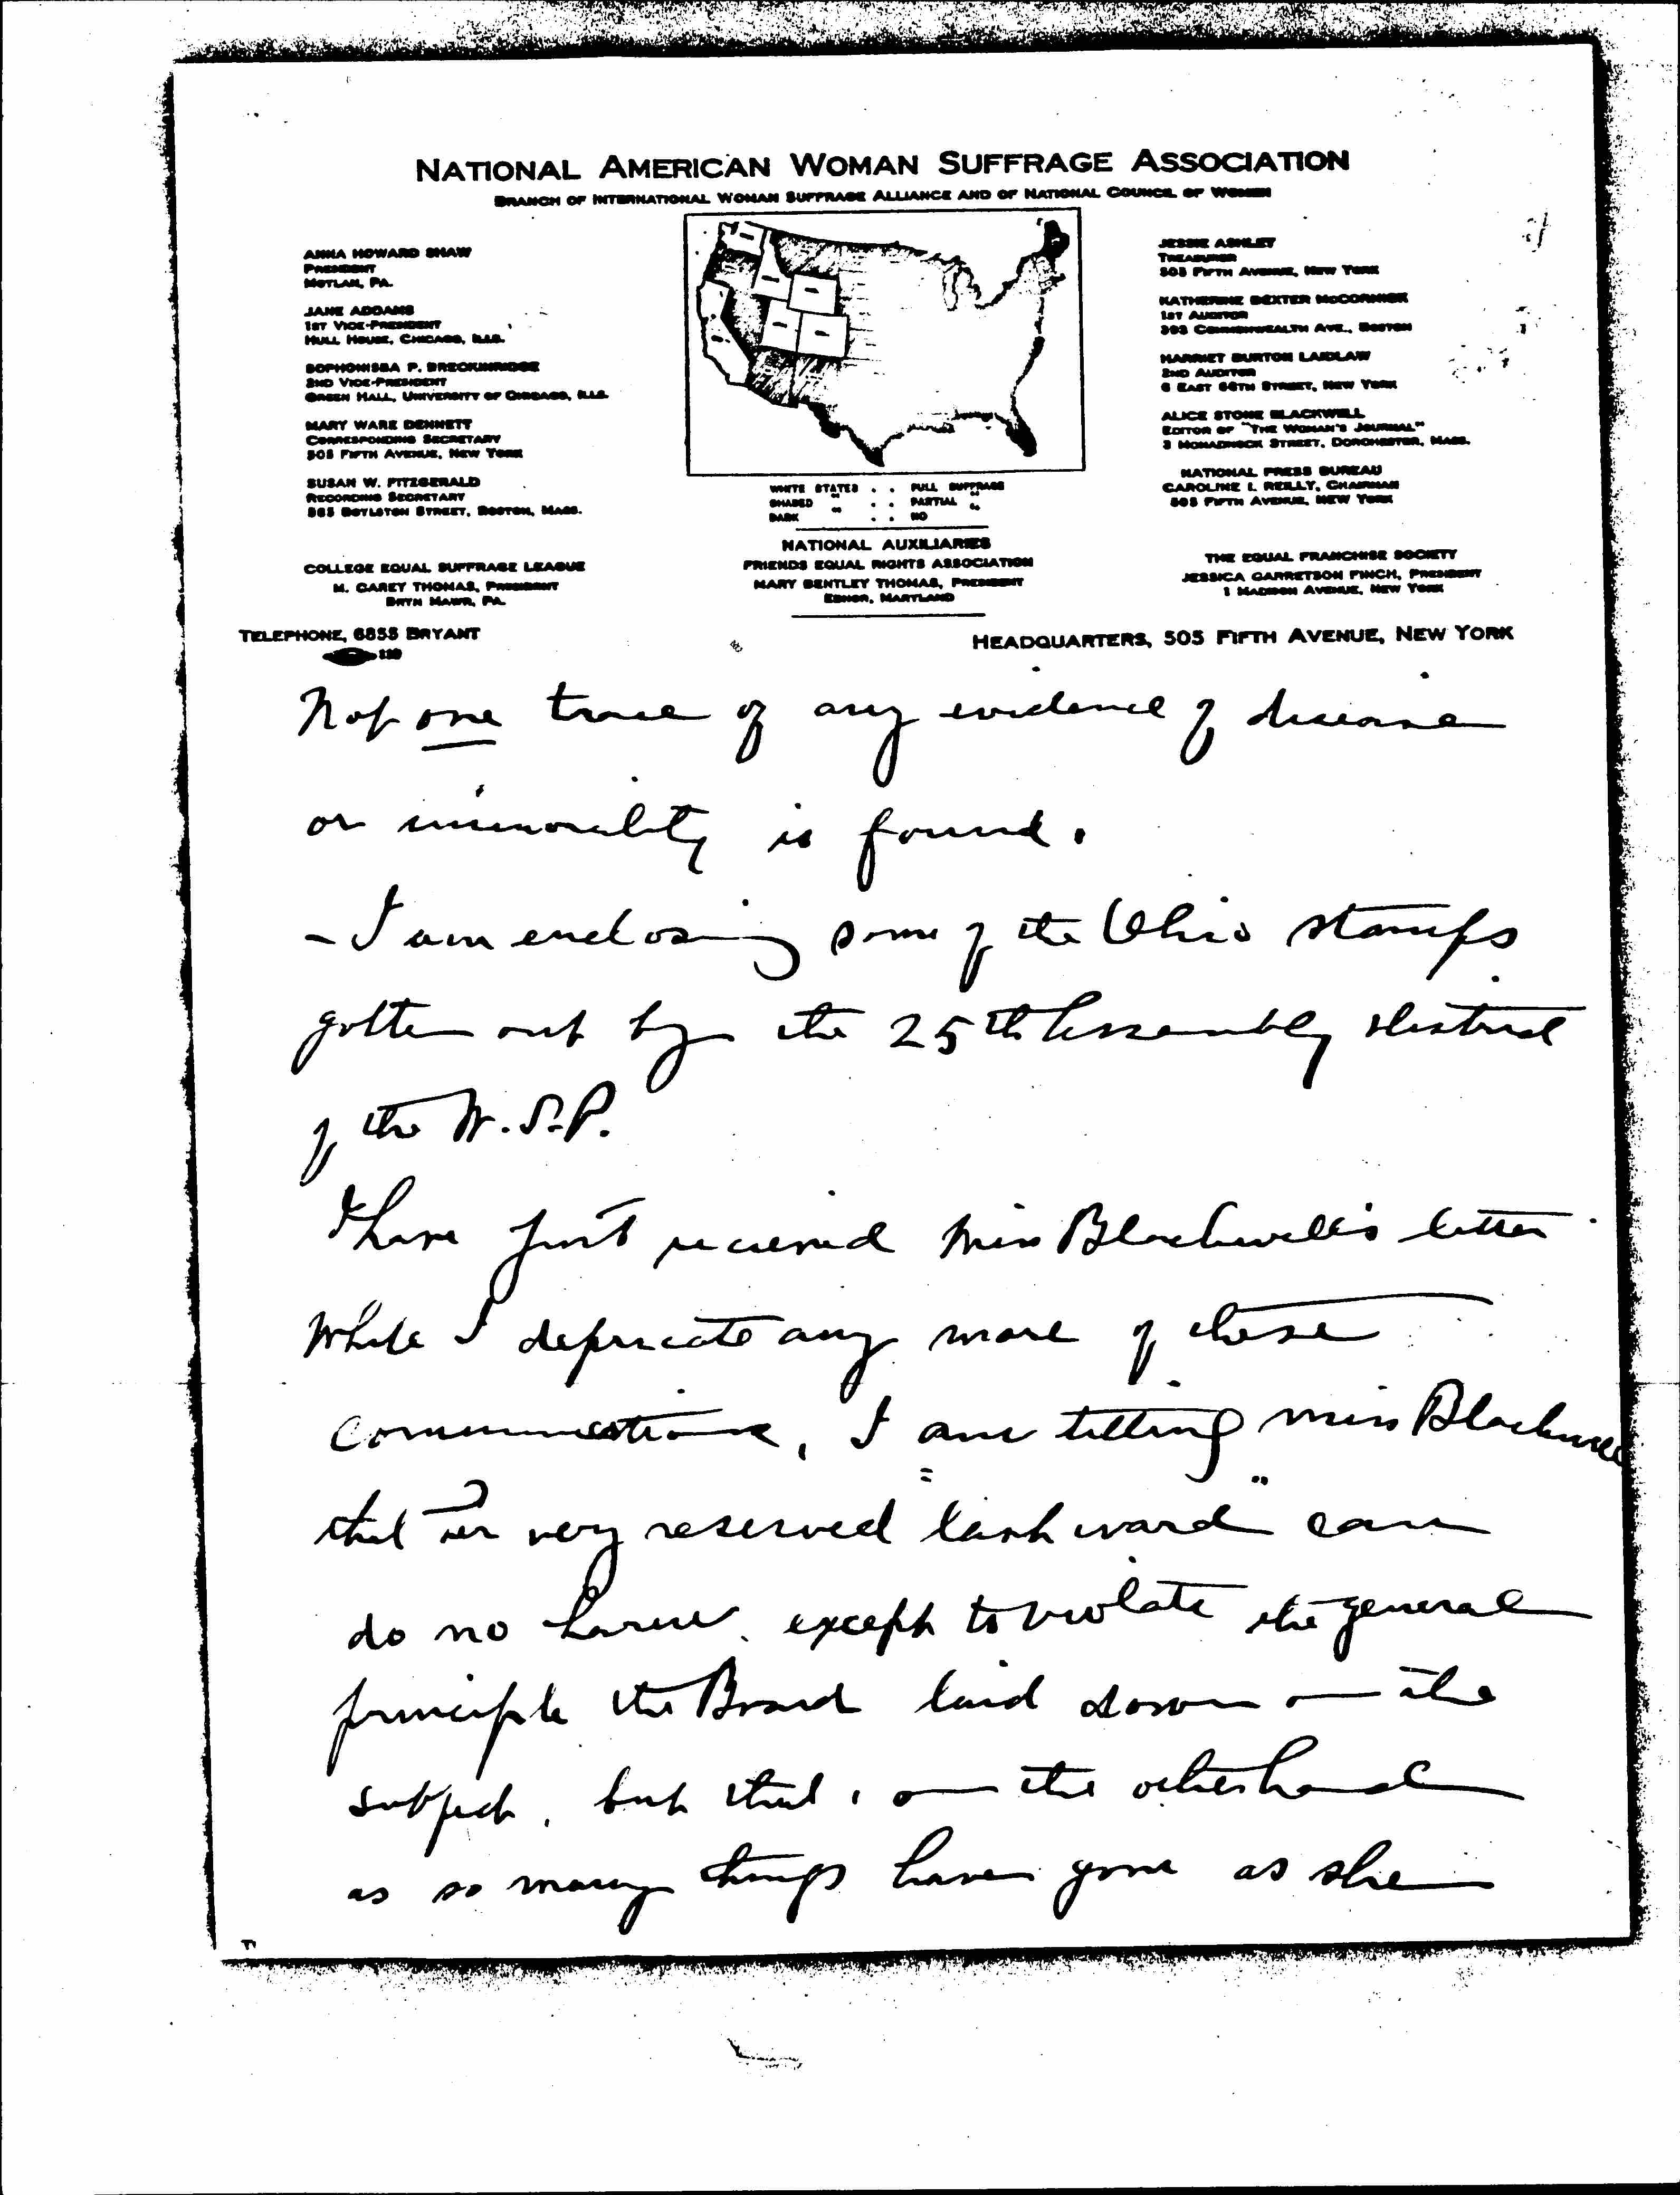 NATIONAL AMERICAN WOMAN SUFFRAGE ASSOCIATION
BRANCH OF INTERNATIONAL WOMAN SUFFRAGE ALLIANCE AND OF NATIONAL COUNCIL OF WOMEN
ANNA HOWARD SHAW
PRESIDENT
MOYLAN, PA.
JANE ADDAMS
1ST VICE-PRESIDENT
HULL HOUSE, CHICAGO, ILLS.
SOPHONISBA P. BRECKINRIDGE
2ND VICE-PRESIDENT
GREEN HALL, UNIVERSITY OF CHICAGO, ILLS.
MARY WARE DENNETT
CORRESPONDING SECRETARY
505 FIFTH AVENUE, NEW YORK
SUSAN W. FITZGERALD
RECORDING SECRETARY
585 BOYLSTON STREET, BOSTON, MASS.
JESSIE ASHLEY
TREASURER
505 FIFTH AVENUE, NEW YORK
KATHERINE DEXTER McCORMICK
1ST AUDITOR
393 COMMONWEALTH AVE., BOSTON
HARRIET BURTON LAIDLAW
2ND AUDITOR
6 EAST 66TH STREET, NEW YORK
ALICE STONE BLACKWELL
EDITOR OF "THE WOMAN'S JOURNAL"
3 MONADNOCK STREET, DORCHESTER, MASS.
NATIONAL PRESS BUREAU
CAROLINE I. REILLY, CHAIRMAN
505 FIFTH AVENUE, NEW YORK
WHITE STATES . . FULL SUFFRAGE
SHADED " . . PARTIAL "
DARK " . . NO "
NATIONAL AUXILIARIES
COLLEGE EQUAL SUFFRAGE LEAGUE
M. CAREY THOMAS, PRESIDENT
BRYN MAWR, PA.
FRIENDS EQUAL RIGHTS ASSOCIATION
MARY BENTLEY THOMAS, PRESIDENT
EDNOR, MARYLAND
THE EQUAL FRANCHISE SOCIETY
JESSICA GARRETSON FINCH, PRESIDENT
1 MADISON AVENUE, NEW YORK
TELEPHONE, 6855 BRYANT
HEADQUARTERS, 505 FIFTH AVENUE, NEW YORK
Not one trace of any evidence of disease
or immorality is found.
- I am enclosing some of the Ohio stamps
gotten out by the 25th Assembly district
of the W.S.P.
I have just received Miss Blackwell's letter
While I depricate any more of these
communications, I am telling Miss Blackwell
that her very reserved "lash ward" can
do no harm except to violate the general
principle the Board laid down on the
subject, but that, on the other hand
as so many things have gone as she